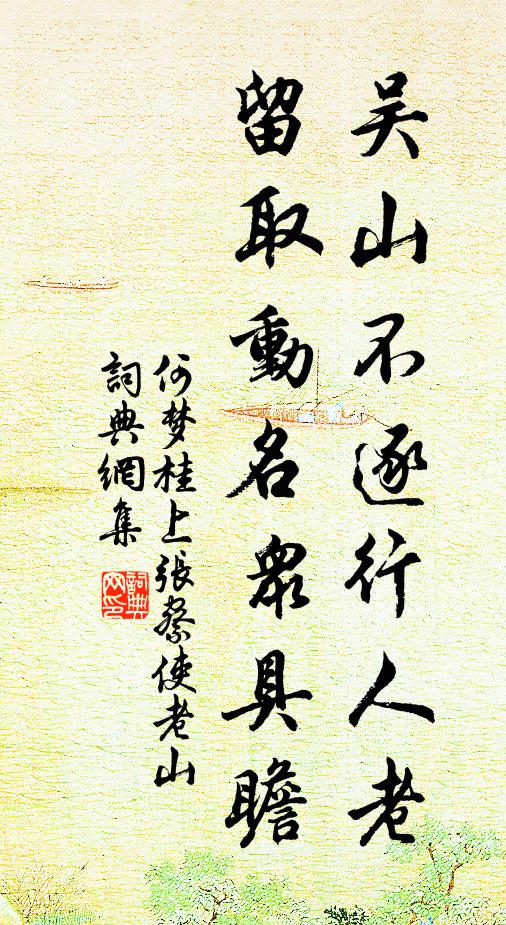 吴山不逐行人老
留取動名眾具瞻
何梦桂上張祭使老山
詞典網集
詞典
网印